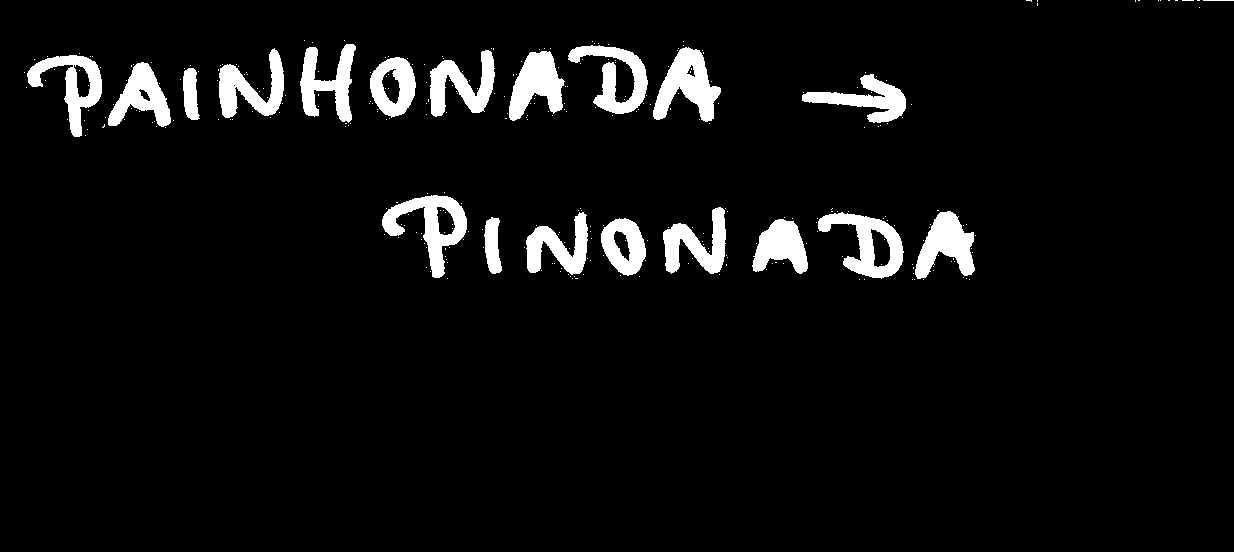 PAINHONADA →
PINONADA